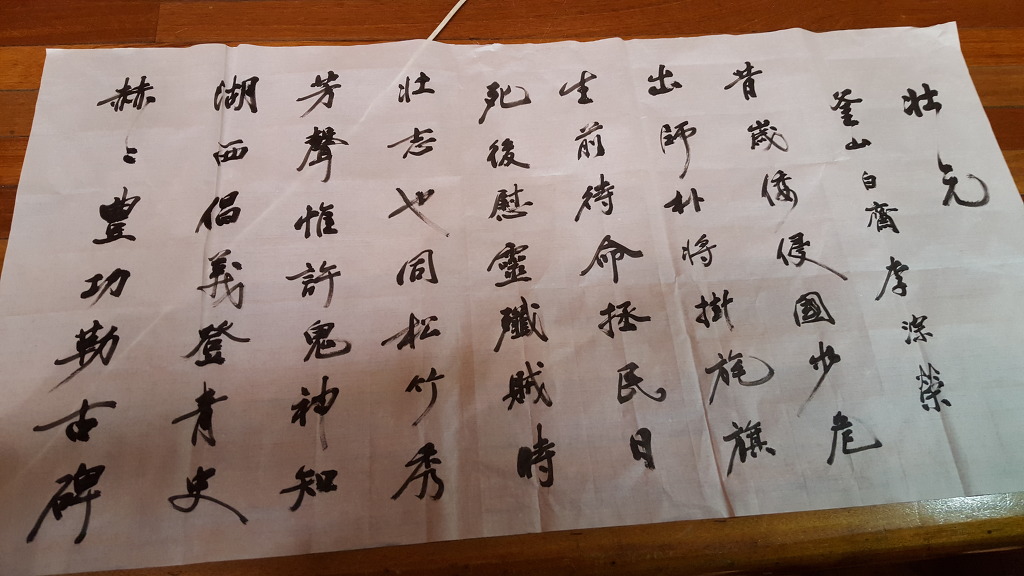 壯元
釜山 白齋 李榮
昔歲倭侵國步危
出師朴將掛旄旗
生前待命拯民日
死後慰靈殲賊時
壯志也同松竹秀
芳聲惟許鬼神知
湖西倡義登青史
赫〻豊功勒古碑